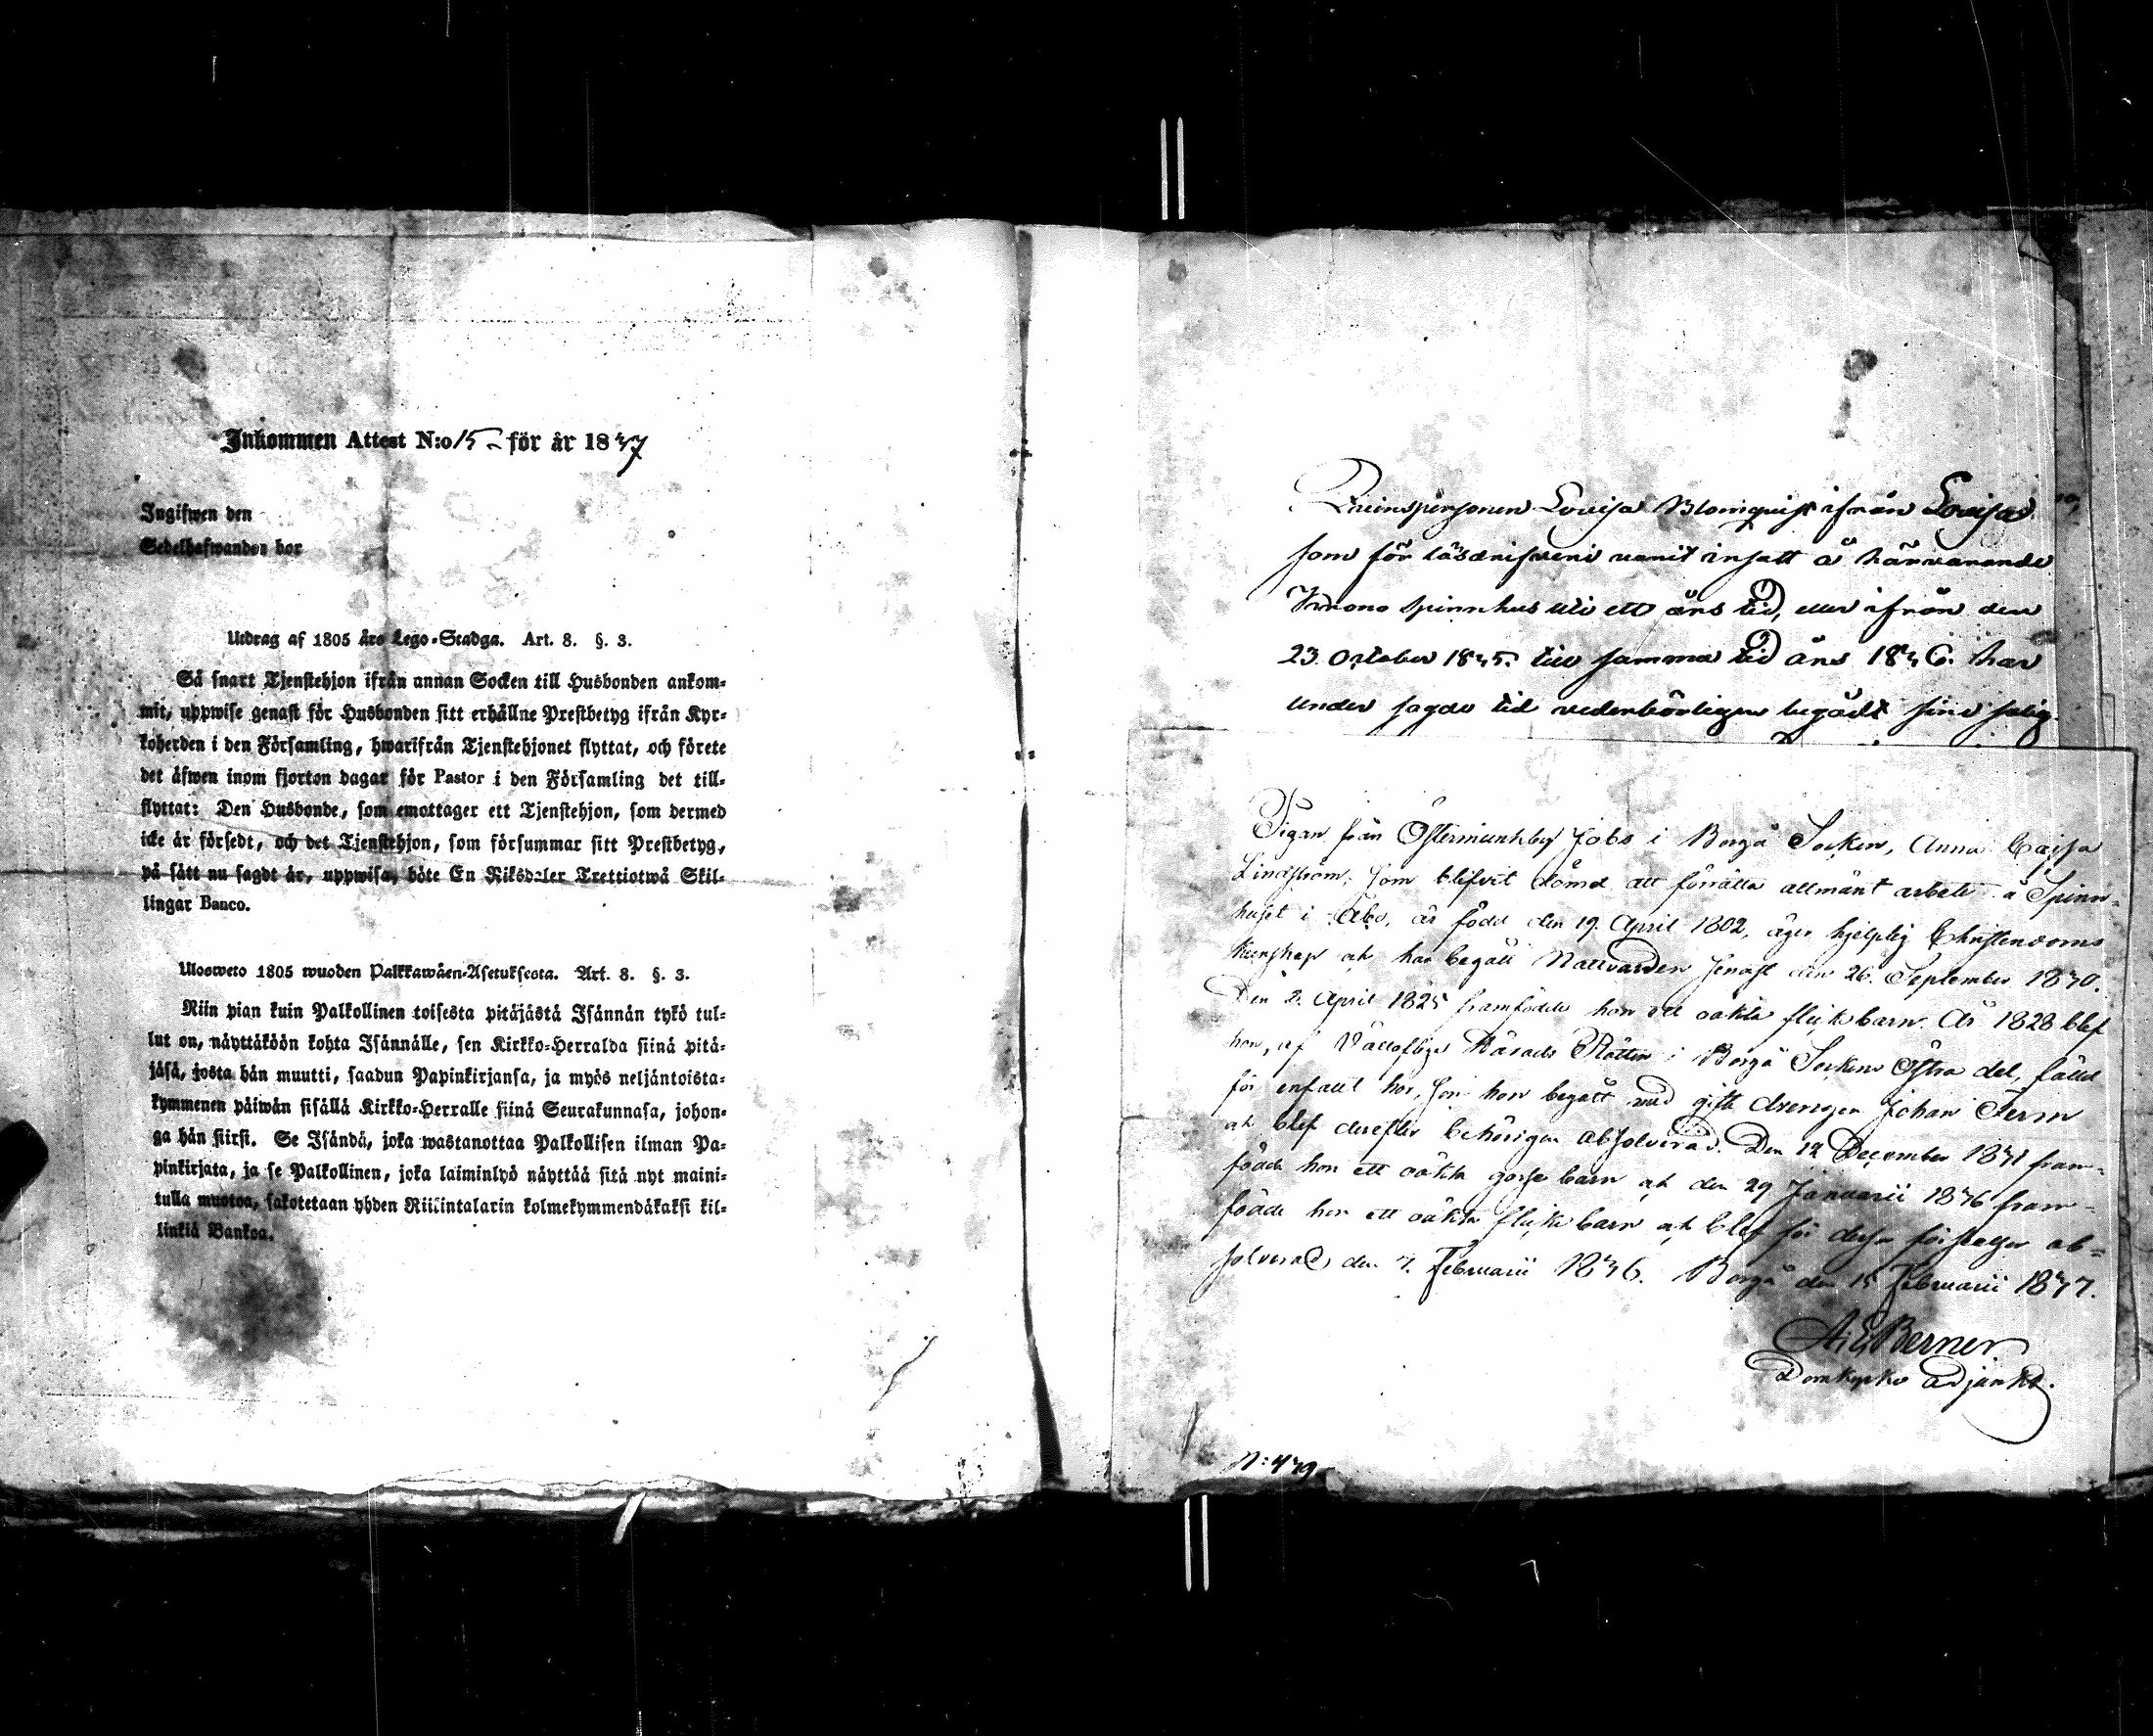 Inkommen Attest N:o 15 för år 1847
Ingifwen den
Sedelhafwanden bor
Utdrag af 1805 års Lego-Stadga. Art. 8. §. 3.
Så snart Tjenstehjon ifrån annan Socken till Husbonden ankom-
mit, uppwise genast för Husbonden sitt erhållne Prestbetyg ifrån Kyr-
koherden i den Församling, hwarifrån Tjenstehjonet flyttat, och förete
det äfwen inom fjorton dagar för Pastor i den Församling det till-
flyttat: Den Husbonde, som emottager ett Tjenstehjon, som dermed
icke är försedt, och det Tjenstehjon, som försummar sitt Prestbetyg,
på sätt nu sagdt är, uppwisa, böte En Riksdaler Trettiotwå Skil-
lingar Banco.
Ulosweto 1805 wuoden Palkkawäen-Asetuksesta. Art. 8. §. 3.
Niin pian kuin Palkollinen toisesta pitäjästä Isännän tykö tul-
lut on, näyttäköön kohta Isännälle, sen Kirkko-Herralda siinä pitä-
jäsä, josta hän muutti, saadun Papinkirjansa, ja myös neljäntoista-
kymmenen päiwän sisällä Kirkko-Herralle siinä Seurakunnasa, johon-
ga hän siirsi. Se Isändä, joka wastanottaa Palkollisen ilman Pa-
pinkirjata, ja se Palkollinen, joka laiminlyö näyttää sitä nyt maini-
tulla muotoa, sakotetaan yhden Riikintalarin kolmekymmendäkaksi kil-
linkiä Bankoa.
Qvinspersonen Lovisa Blomqvist ifrån Lovisa
som för lösdrifveri varit insatt å härvarande
Krono spinnhus uti ett års tid, eller ifrån den
23. October 1845. till samma tid års 1846. har
under sagde tid vederbörligen begådt sina salig-
Pigan från Östermunkby Jobs i Borgå Socken, Anna Cajsa
Lindström, som blifvit dömd att förrätta allmänt arbete å Spinn-
huset i Åbo, är född den 19. April 1802, äger hjelplig Christendoms
kunskap och har begått Nattvarden senast den 26. September 1840.
Den 2. April 1825 framfödde hon ett oäkta flickebarn. År 1828 blef
hon, af Vällofliga Härads Rätten i Borgå Sockens Östra del, fälld
för enfallt hor, som hon begått med gifte drengen Johan
och blef derefter behörigen absolverad. Den 12 December 1841 fram-
födde hon ett oäkta gosse barn och den 29 Januarii 1846 fram-
födde hon ett oäkta flicke barn och blef för dessa förseelser ab-
solverad den 7. Februarii 1846. Borgå den 15 Februarii 1847.
Berner
Domkyrko Adjunkt.
N:479